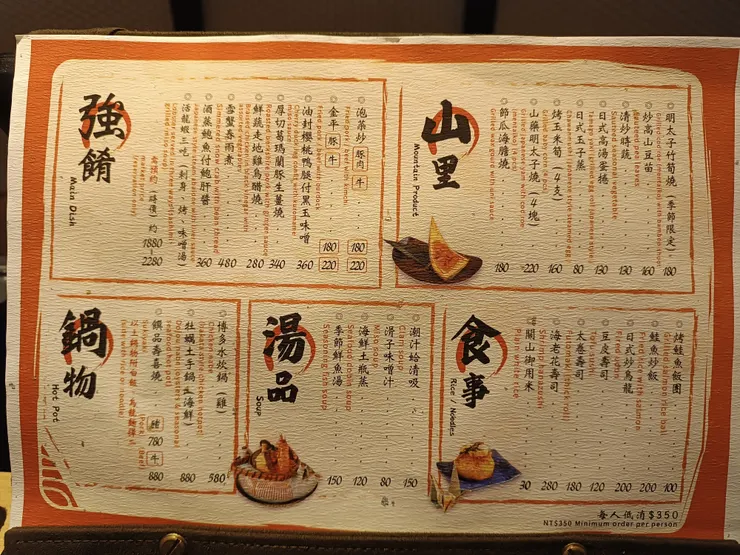 山里
Mountain Product
明太子竹筍燒（季節限定）
180
炒高山豆苗
160
清炒時蔬
130
Stir-fried seasonal vegetable
日式高湯蛋捲
130
日式玉子蒸
80
烤玉米筍（4支）
160
山藥明太子燒（4塊）
220
節瓜海膽燒
180
強肴
Main Dish
泡菜炒
豚肉
牛
180
220
Fried pork / beef with kimchi
金平
豚
牛
180
220
Fried pork / beef with burdock
油封櫻桃鴨腿付黑玉味噌
360
厚切葛瑪蘭豚生薑燒
340
鮮蔬走地雞烏醋燒
280
雪蟹春雨煮
480
酒蒸鮑魚付鮑肝醬
360
活龍蝦三吃（刺身、烤、味噌湯）
預約（時價）約
1880
2280
(reservation only)
食事
Rice / Noodles
烤鮭魚飯團
100
Grilled salmon rice ball
鮭魚炒飯
200
Fried rice with salmon
日式炒烏龍
200
Fried udon
豆皮壽司
120
Tofu sushi
太卷壽司
180
Futomaki (thick roll)
海老花壽司
280
關山御用米
30
Plain white rice
湯品
Soup
潮汁蛤清吸
150
Clam soup
滑子味噌汁
80
Miso soup
海鮮土瓶蒸
120
季節鮮魚湯
150
Seasonal fish soup
鍋物
Hot Pot
博多水炊鍋（雞）
580
牡蠣土手鍋（海鮮）
880
饌品壽喜燒
豬
780
牛
880
每人低消$350
NT$350 Minimum order per person